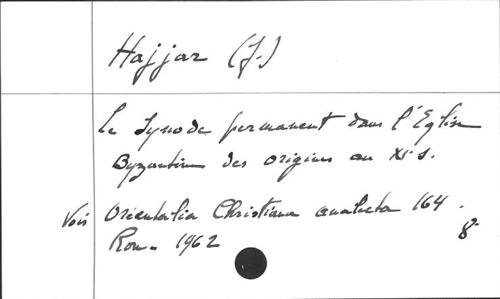 Hajjar (J.)
Le Synode permanent dans l'Eglise
Byzantine des origines au XIe s.
Voir Orientalia Christiana analecta 164.
Rome 1962 8°